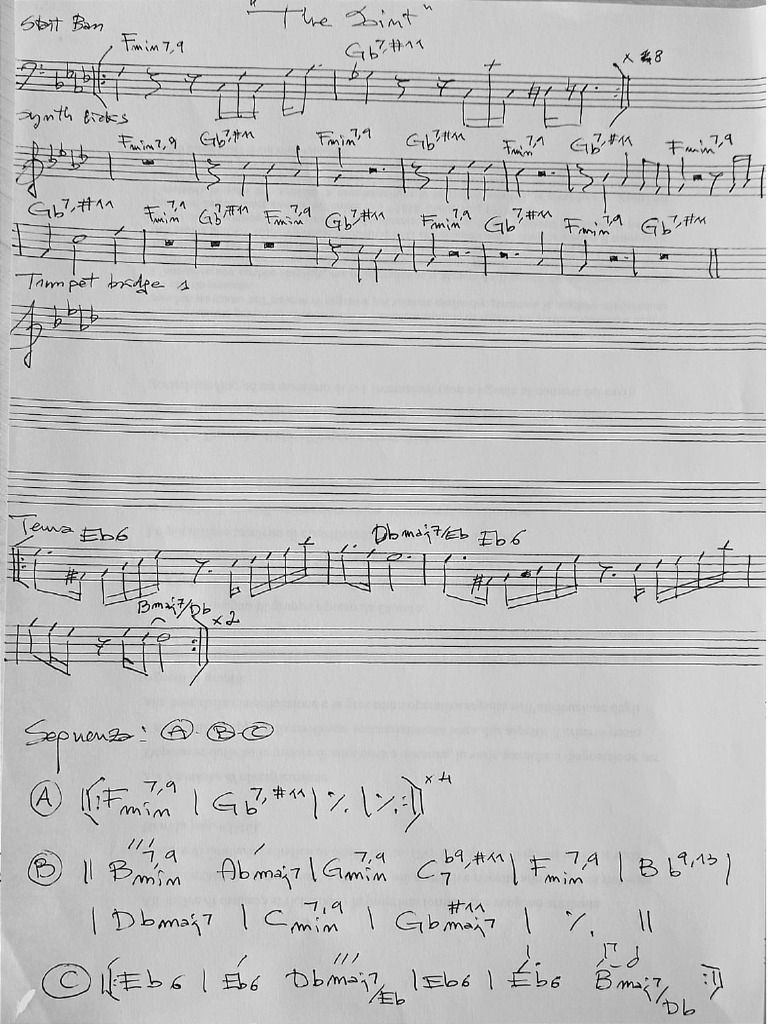 "The Joint"
Start Bass
Fmin7,9 Gb7,#11 x 8
Synth licks
Fmin7,9 Gb7,#11 Fmin7,9 Gb7,#11 Fmin7,9 Gb7,#11 Fmin7,9
Gb7,#11 Fmin7,9 Gb7,#11 Fmin7,9 Gb7,#11 Fmin7,9 Gb7,#11 Fmin7,9 Gb7,#11
Trumpet bridge 1
Tema Eb6 Dbmaj7/Eb Eb6
Bmaj7/Db x2
Sequenza: A B C
A ||: Fmin7,9 | Gb7,#11 | ٪ | ٪ :|| x4
B || Bmin7,9 Abmaj7 | Gmin7,9 C7b9,#11 | Fmin7,9 | Bb9,13 |
| Dbmaj7 | Cmin7,9 | Gbmaj7#11 | ٪ ||
C ||: Eb6 | Eb6 Dbmaj7/Eb | Eb6 | Eb6 Bmaj7/Db :||